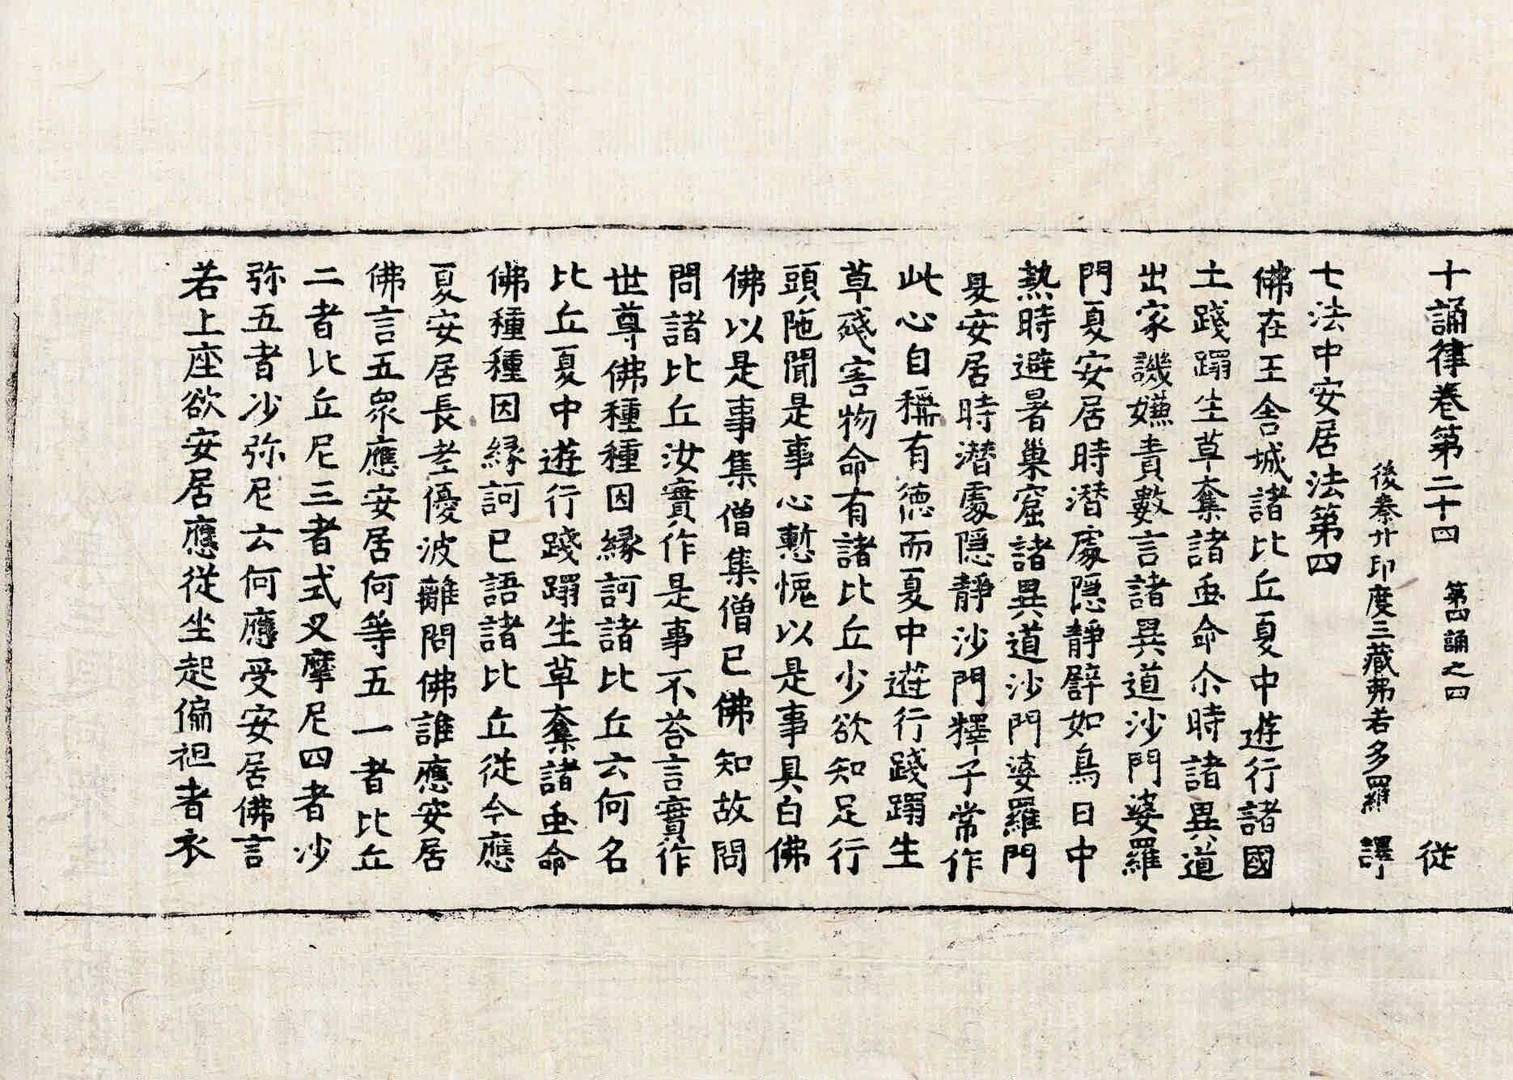 十誦律卷第二十四 第四誦之四 從
後秦北印度三藏弗若多羅 譯
七法中安居法第四
佛在王舍城諸比丘夏中遊行諸國
土踐蹋生草奪諸虫命尒時諸異道
出家譏嫌責數言諸異道沙門婆羅
門夏安居時潜處隱靜譬如鳥日中
熱時避暑巢窟諸異道沙門婆羅門
夏安居時潜處隱靜沙門釋子常作
此心自稱有德而夏中遊行踐蹋生
草殘害物命有諸比丘少欲知足行
頭陁聞是事心慙愧以是事具白佛
佛以是事集僧集僧已佛知故問
問諸比丘汝實作是事不荅言實作
世尊佛種種因縁訶諸比丘云何名
比丘夏中遊行踐蹋生草奪諸虫命
佛種種因縁訶已語諸比丘從今應
夏安居長老優波離問佛誰應安居
佛言五衆應安居何等五一者比丘
二者比丘尼三者式叉摩尼四者沙
弥五者沙弥尼云何應受安居佛言
若上座欲安居應從坐起偏袒著衣